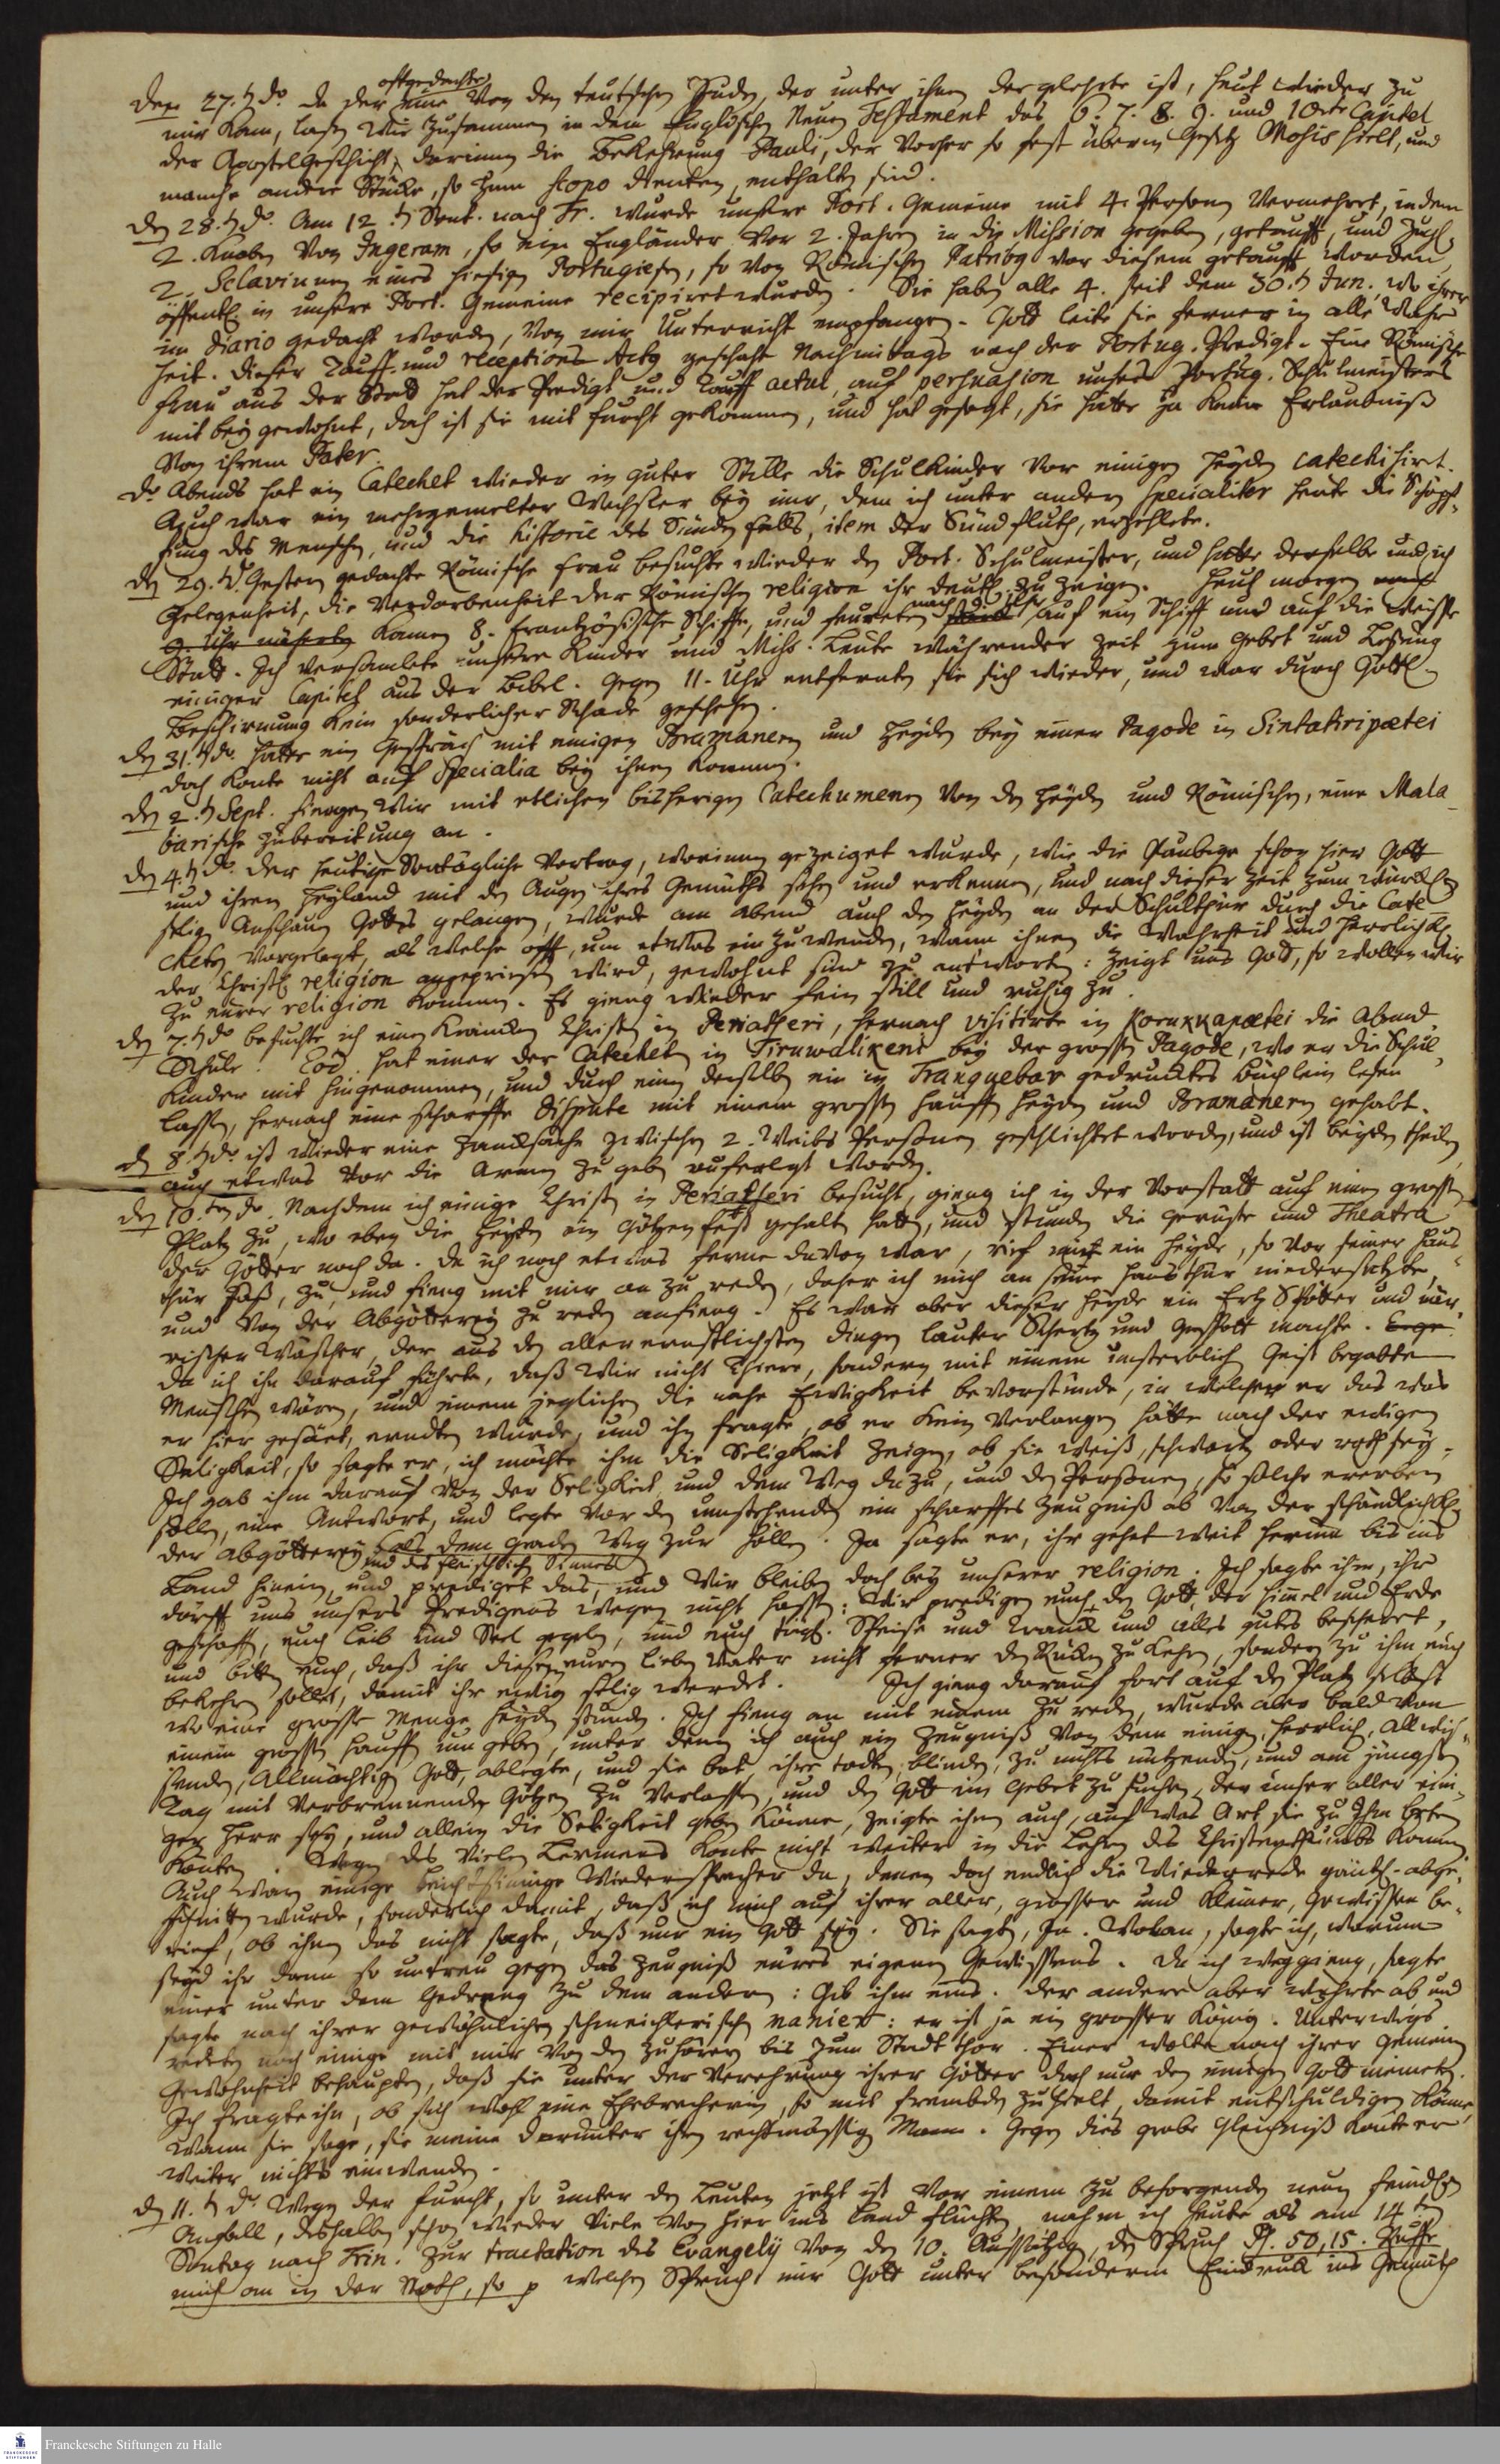 den 27.t do. da der oftgedachte eine von den teutschen Juden, der unter ihnen der gelehrte ist, heut wieder zu
mir kam, lasen wir zusammen in dem Englischen Neuen Testament das 6. 7. 8. 9. und 10te Capitel
der Apostelgeschicht, darinnen die Bekehrung Pauli, der vorher so fest überm Gesetz Mosis hielt, und
manche andere Stücke, so zum scopo dienten, enthalten sind.
den 28.t do. Am 12.t Sont. nach Tr. wurde unsere Port. Gemeine mit 4. Persone vermehret, indem
2. Knaben von Ingeram, so ein Engländer vor 2. Jahren in die Mission gegeben, getaufft, und zugl.
2. Sclavinnen eines hiesigen Portugiesen, so von Römischen Patribg vor diesem getaufft worden,
öffentl. in unsere Port. Gemeine recipiret wurden. Sie haben alle 4. seit dem 30.t Jun., wo ihrer
im Diario gedacht worden, von mir Unterricht empfangen. Gott leite sie ferner in alle Wahr-
heit. Dieser Tauff- und receptions Actg geschahe Nachmitags nach der Portug. Predigt. Eine Römische
Frau aus der Stadt hat der Predigt und Tauff actui, auf persuasion unsers Portug. Schulmeisters
mit bey gewohnt, doch ist sie mit furcht gekommen, und hat gesagt, sie hätte ja keine Erlaubniß
von ihrem Pater.
do. Abends hat ein Catechet wieder in guter Stille die Schulkinder vor einigen Heyden catechisirt.
Auch war ein mehrgemelter Wechsler bey mir, dem ich unter andern specialiter heute die Schöpf-
fung des Menschen, und die Historie des Sünden falls, item der Sündfluth, erzehlete.
den 29.t do. Gestern gedachte Römische Frau besuchte wieder den Port. Schulmeister, und hatte derselbe und ich
Gelegenheit, die Verdorbenheit der Römischen religion ihr deutl. zu zeigen. Heut morgen
9. Uhr näherten kamen 8. Frantzösische Schiffe, und feureten nach 9. Uhr starck auf ein Schiff und auf die Weisse
Stadt. Ich versamlete unsere Kinder und Miss. Leute währender Zeit zum Gebet und Lesung
einiger Capitel aus der Bibel. Gegen 11. Uhr entfernten sie sich wieder, und war durch Göttl.
Beschirmung kein sonderlicher Schade geschehen.
den 31.t do. hatte ein Gespräch mit einigen Bramanern und Heyden bey einer Pagode in Sintatiripætei
doch konte nicht auf Specialia bey ihnen kommen.
den 2.t Sept. fiengen wir mit etlichen bisherigen Catechumenen von den Heyden und Römischen, eine Mala-
barische Zubereitung an.
den 4.t do. der heutige Sontägliche Vortrag, worinnen gezeiget wurde, wie die Gläubige schon hier Gott
und ihren Heyland mit den Augen ihres Gemüths sehen und erkennen, und nach dieser Zeit zum würckl.
selig Anschauen Gottes gelangen, wurde am Abend auch den Heyden an der Schulthür durch die Cate-
cheten vorgelegt, als welche offt, um etwas einzuwenden, wann ihnen die Wahrheit und Herrlichk.
der Christl. religion angepriesen wird, gewohnt sind zu antworten: zeigt uns Gott, so wollen wir
zu eurer religion kommen. Es gieng wieder fein still und ruhig zu.
den 7.t do. besuchte ich einen krancken Christen in Periatheri, hernach visitirte in Korukkapætei die Abend-
Schule. Eod. hat einer der Catecheten in Tiruwalikeni bey der grossen Pagode, wo er die Schul-
kinder mit hingenommen, und durch einen derselben ein in Tranquebar gedrucktes Büchlein lesen
lassen, hernach eine scharffe Dispute mit einem grossen hauffen Heyden und Bramanern gehabt.
den 8.t do. ist wieder eine Zancksache zwischen 2. Weibs Persone geschlichtet worden, und ist beyden theilen
auch etwas vor die Armen zu geben auferlegt worden.
den 10.ten do. Nachdem ich einige Christen in Periatheri besucht, gieng ich in der Vorstatt auf einen grossen
Platz zu, wo eben die Heyden ein Götzen fest gehalten hatten, und stunden die Gerüste und Theatra
der Götter noch da. Da ich noch etwas ferne davon war, rief mir ein Heyde, so vor seiner Haus-
thür saß, zu, und fieng mit mir an zu reden, daher ich mich an seine Hausthür niedersetzte,
und von der Abgötterey zu reden anfieng. Es war aber dieser Heyde ein Ertz Spötter und när-
rischer Wäscher, der aus den allerernstlichsten dingen lauter Schertz und Gespött machte.
Da ich ihn darauf führte, daß wir nicht Thiere, sondern mit einem unsterblich Geist begabte
Menschen wären, und einem jeglichen die nahe Ewigkeit bevorstünde, in welcher er das was
er hier gesäet, erndten würde, und ihn fragte, ob er kein Verlangen hätte nach der ewigen
Seligkeit, so sagte er, ich möchte ihm die Seligkeit zeigen, ob sie weiß, schwartz oder roth sey.
Ich gab ihm darauf von der Seligkeit, und dem Weg dazu, und den Persone, so solche ererben
sollen, eine Antwort, und legte vor den umstehenden ein scharffes Zeugniß ab von der schändlichk.
der Abgötterey und des fleischlichen Sinnes als dem Graden Weg zur Höllen. Ja sagte er, ihr gehet weit herum bis ins
Land hinein, und prediget das, und wir bleiben doch bey unserer religion. Ich sagte ihm, ihr
dörfft uns unsers Predigens wegen nicht hassen: Wir predigen euch, den Gott, der Himel und Erde
geschaffen, euch Leib und Seel gegeben, und euch tägl. Speise und Tranck und alles gutes bescheeret,
und bitten euch, daß ihr diesem euren lieben Vater nicht ferner den Rücken zu kehren, sondern zu ihm euch
bekehren sollet, damit ihr ewig selig werdet. Ich gieng darauf fort auf den Platz selbst
wo eine grosse Menge Heyden stunden. Ich fieng an mit einem zu reden, wurde aber bald von
einem grossen hauffen umgeben, unter denen ich auch ein Zeugniß von dem einigen, herrlich, allwis-
senden, Allmächtigen Gott, ablegte, und sie bat, ihre todten, blinden, zu nichts nützenden, und am jüngsten
Tag mit verbrennenden Götzen zu verlassen, und den Gott im Gebet zu suchen, der unser aller eini-
ger Herr sey, und allein die Seligkeit geben könne, zeigte ihnen auch, auf was Art sie zu Ihm beten
könten. Wegen des vielen Lermens konte nicht weiter in die Lehren des Christenthumbs kommen.
Auch waren einige leichtsinnige Wiedersprecher da, denen doch endlich die Wiederrede gäntzl. abge-
schnitten wurde, sonderlich damit, daß ich mich auf ihrer aller, grosser und kleiner, Gewissen be-
rief, ob ihnen das nicht sagte, daß nur ein Gott sey. Sie sagten, Ja. Wolan, sagte ich, warum
seyd ihr dann so untreu gegen das Zeugniß eures eigenen Gewissens. Da ich weggieng, sagte
einer unter dem Gedräng zu dem andern: Gib ihm eins. Der andere aber wehrte ab und
sagte nach ihrer gewöhnlichen schmeichlerischen manier: er ist ja ein grosser König. Unterwegs
redeten noch einige mit mir von den Zuhörern bis zum Stadt thor. Einer wolte nach ihrer gemeinen
Gewohnheit behaupten, daß sie unter der Verehrung ihrer Götter doch nur den einigen Gott meineten.
Ich fragte ihn, ob sich wohl eine Ehebrecherin, so mit frembden zuhielt, damit entschuldigen könne,
wann sie sage, sie meine darunter ihren rechtmässigen Mann. Gegen dis grobe Gleichniß konte er
weiter nichts einwenden.
den 11.t do. Wegen der furcht, so unter den Leuten jetzt ist vor einem zu besorgenden neuen feindl.
Anfall, deshalben schon wieder viele von hier ins Land flüchten, nahm ich heute als am 14ten
Sontag nach Trin. zur tractation des Evangelij von den 10. Aussätzigen, den Spruch Ps. 50,15. Ruffe
mich an in der Noth, so p welchen Spruch mir Gott unter besonderm Eindruck ins Gemüth
Franckesche Stiftungen zu Halle
FRANCKESCHE STIFTUNGEN